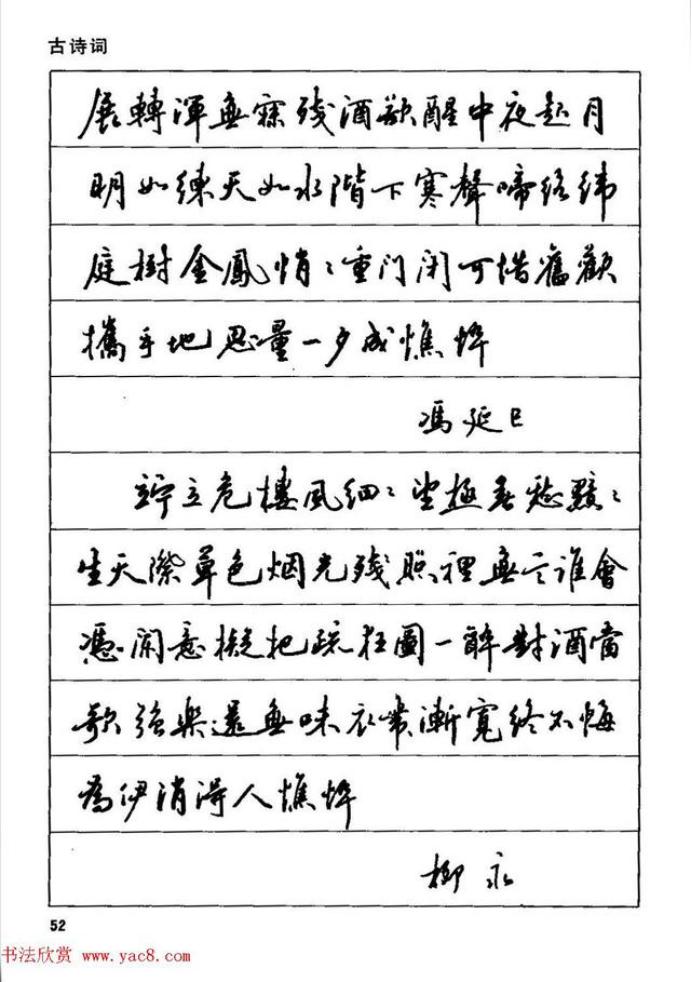 古诗词
展轉渾無寐残酒欲醒中夜起月
明如練天如水階下寒聲啼络緯
庭樹金鳳悄〻重门闭可惜舊歡
攜手地思量一夕成憔悴
馮延巳
竚立危樓風细〻望極春愁黯〻
生天際草色烟光残照裡無言谁會
凭闌意擬把疏狂圖一醉對酒當
歌強樂還無味衣带漸寬终不悔
為伊消得人憔悴
柳永
52
书法欣赏 www.yac8.com